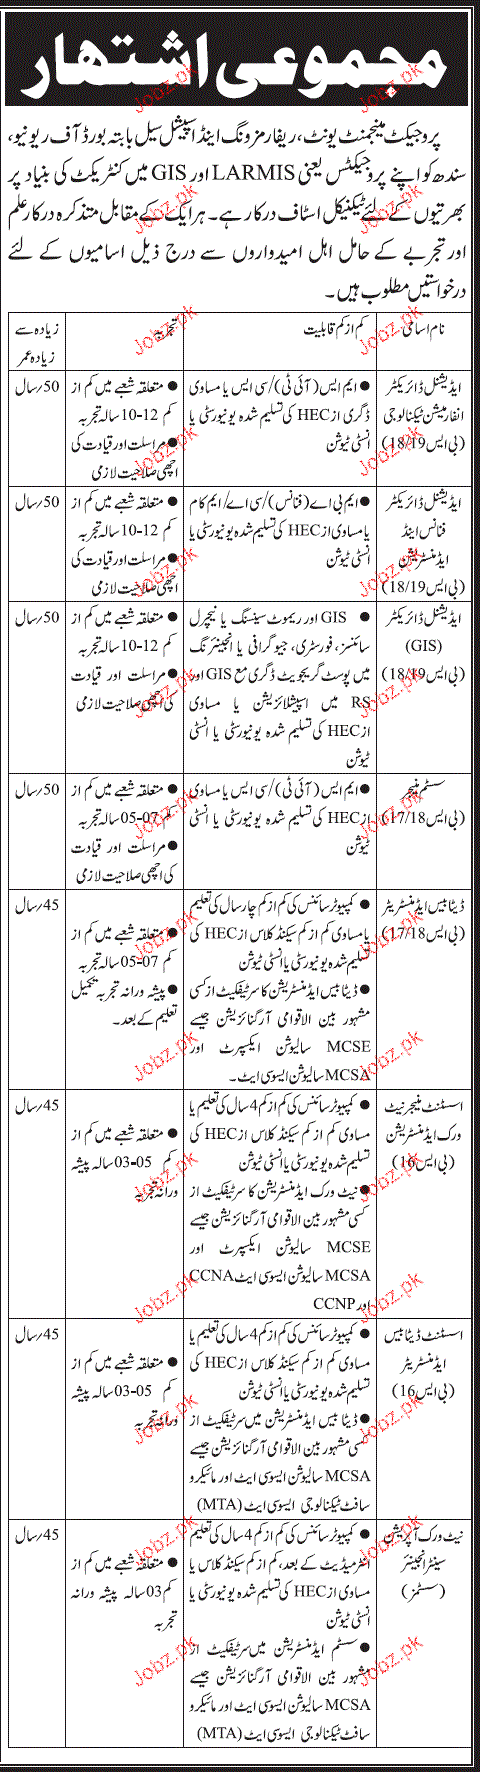 مجموعی اشتہار
پروجیکٹ مینجمنٹ یونٹ، ریفارمز ونگ اینڈ اسپیشل سیل بابتہ بورڈ آف ریونیو،
سندھ کو اپنے پروجیکٹس یعنی LARMIS اور GIS میں کنٹریکٹ کی بنیاد پر
بھرتیوں کے لئے ٹیکنیکل اسٹاف درکار ہے۔ ہر ایک کے مقابل متذکرہ درکار علم
اور تجربے کے حامل اہل امیدواروں سے درج ذیل اسامیوں کے لئے
درخواستیں مطلوب ہیں۔
نام اسامی
کم از کم قابلیت
تجربہ
زیادہ سے
زیادہ عمر
ایڈیشنل ڈائریکٹر
انفارمیشن ٹیکنالوجی
(بی ایس 18/19)
● ایم ایس (آئی ٹی)/سی ایس یا مساوی
ڈگری از HEC کی تسلیم شدہ یونیورسٹی یا
انسٹی ٹیوشن
● متعلقہ شعبے میں کم از
کم 12-10 سالہ تجربہ
● مراسلت اور قیادت کی
اچھی صلاحیت لازمی
50/سال
ایڈیشنل ڈائریکٹر
فنانس اینڈ
ایڈمنسٹریشن
(بی ایس 18/19)
● ایم بی اے (فنانس)/سی اے/ایم کام
یا مساوی از HEC کی تسلیم شدہ یونیورسٹی یا
انسٹی ٹیوشن
● متعلقہ شعبے میں کم از
کم 12-10 سالہ تجربہ
● مراسلت اور قیادت کی
اچھی صلاحیت لازمی
50/سال
ایڈیشنل ڈائریکٹر
(GIS)
(بی ایس 18/19)
● GIS اور ریموٹ سینسنگ یا نیچرل
سائنسز، فورسٹری، جیوگرافی یا انجینئرنگ
میں پوسٹ گریجویٹ ڈگری مع GIS اور
RS میں اسپیشلائزیشن یا مساوی
از HEC کی تسلیم شدہ یونیورسٹی یا انسٹی
ٹیوشن
● متعلقہ شعبے میں کم از
کم 12-10 سالہ تجربہ
● مراسلت اور قیادت
کی اچھی صلاحیت لازمی
50/سال
سسٹم منیجر
(بی ایس 17/18)
● ایم ایس (آئی ٹی)/سی ایس یا مساوی
از HEC کی تسلیم شدہ یونیورسٹی یا انسٹی
ٹیوشن
● متعلقہ شعبے میں کم از
کم 07-05 سالہ تجربہ
● مراسلت اور قیادت
کی اچھی صلاحیت لازمی
50/سال
ڈیٹا بیس ایڈمنسٹریٹر
(بی ایس 17/18)
● کمپیوٹر سائنس کی کم از کم چار سال کی تعلیم
یا مساوی کم از کم سیکنڈ کلاس از HEC کی
تسلیم شدہ یونیورسٹی یا انسٹی ٹیوشن
● ڈیٹا بیس ایڈمنسٹریشن کا سرٹیفکیٹ از کسی
مشہور بین الاقوامی آرگنائزیشن جیسے
MCSE سالیوشن ایکسپرٹ اور
MCSA سالیوشن ایسوسی ایٹ۔
● متعلقہ شعبے میں کم از
کم 07-05 سالہ تجربہ
● پیشہ ورانہ تجربہ تکمیل
تعلیم کے بعد۔
45/سال
اسسٹنٹ منیجر نیٹ
ورک ایڈمنسٹریشن
(بی ایس 16)
● کمپیوٹر سائنس کی کم از کم 4 سال کی تعلیم یا
مساوی کم از کم سیکنڈ کلاس از HEC کی
تسلیم شدہ یونیورسٹی یا انسٹی ٹیوشن
● نیٹ ورک ایڈمنسٹریشن کا سرٹیفکیٹ از
کسی مشہور بین الاقوامی آرگنائزیشن جیسے
MCSE سالیوشن ایکسپرٹ اور
MCSA سالیوشن ایسوسی ایٹ CCNA
اور CCNP
● متعلقہ شعبے میں کم از
کم 05-03 سالہ پیشہ
ورانہ تجربہ
45/سال
اسسٹنٹ ڈیٹا بیس
ایڈمنسٹریٹر
(بی ایس 16)
● کمپیوٹر سائنس کی کم از کم 4 سال کی تعلیم یا
مساوی کم از کم سیکنڈ کلاس از HEC کی
تسلیم شدہ یونیورسٹی یا انسٹی ٹیوشن
● ڈیٹا بیس ایڈمنسٹریشن میں سرٹیفکیٹ از
کسی مشہور بین الاقوامی آرگنائزیشن جیسے
MCSA سالیوشن ایسوسی ایٹ اور مائیکرو
سافٹ ٹیکنالوجی ایسوسی ایٹ (MTA)
● متعلقہ شعبے میں کم از
کم 05-03 سالہ پیشہ
ورانہ تجربہ
45/سال
نیٹ ورک آپریشن
سینٹر انجینئر
(سسٹمز)
● کمپیوٹر سائنس کی کم از کم 4 سال کی تعلیم
انٹرمیڈیٹ کے بعد، کم از کم سیکنڈ کلاس یا
مساوی از HEC کی تسلیم شدہ یونیورسٹی یا
انسٹی ٹیوشن
● سسٹم ایڈمنسٹریشن میں سرٹیفکیٹ از
مشہور بین الاقوامی آرگنائزیشن جیسے
MCSA سالیوشن ایسوسی ایٹ اور مائیکرو
سافٹ ٹیکنالوجی ایسوسی ایٹ (MTA)
● متعلقہ شعبے میں کم از
کم 03 سالہ پیشہ ورانہ
تجربہ
45/سال
Jobz.pk